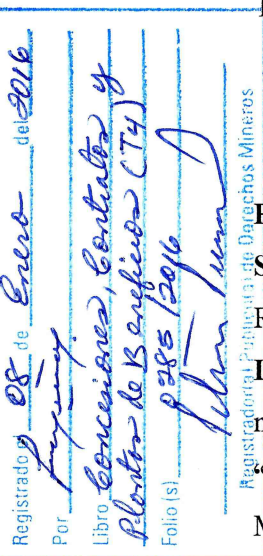 Registrado el 08 de Enero del 2016
Por
Libro Concesiones, Contratos y
Plantas de Beneficios (T4)
Folio(s) 0285/2016
Registrador(a) Público(a) de Derechos Mineros
F
S
F
I
n
“
M